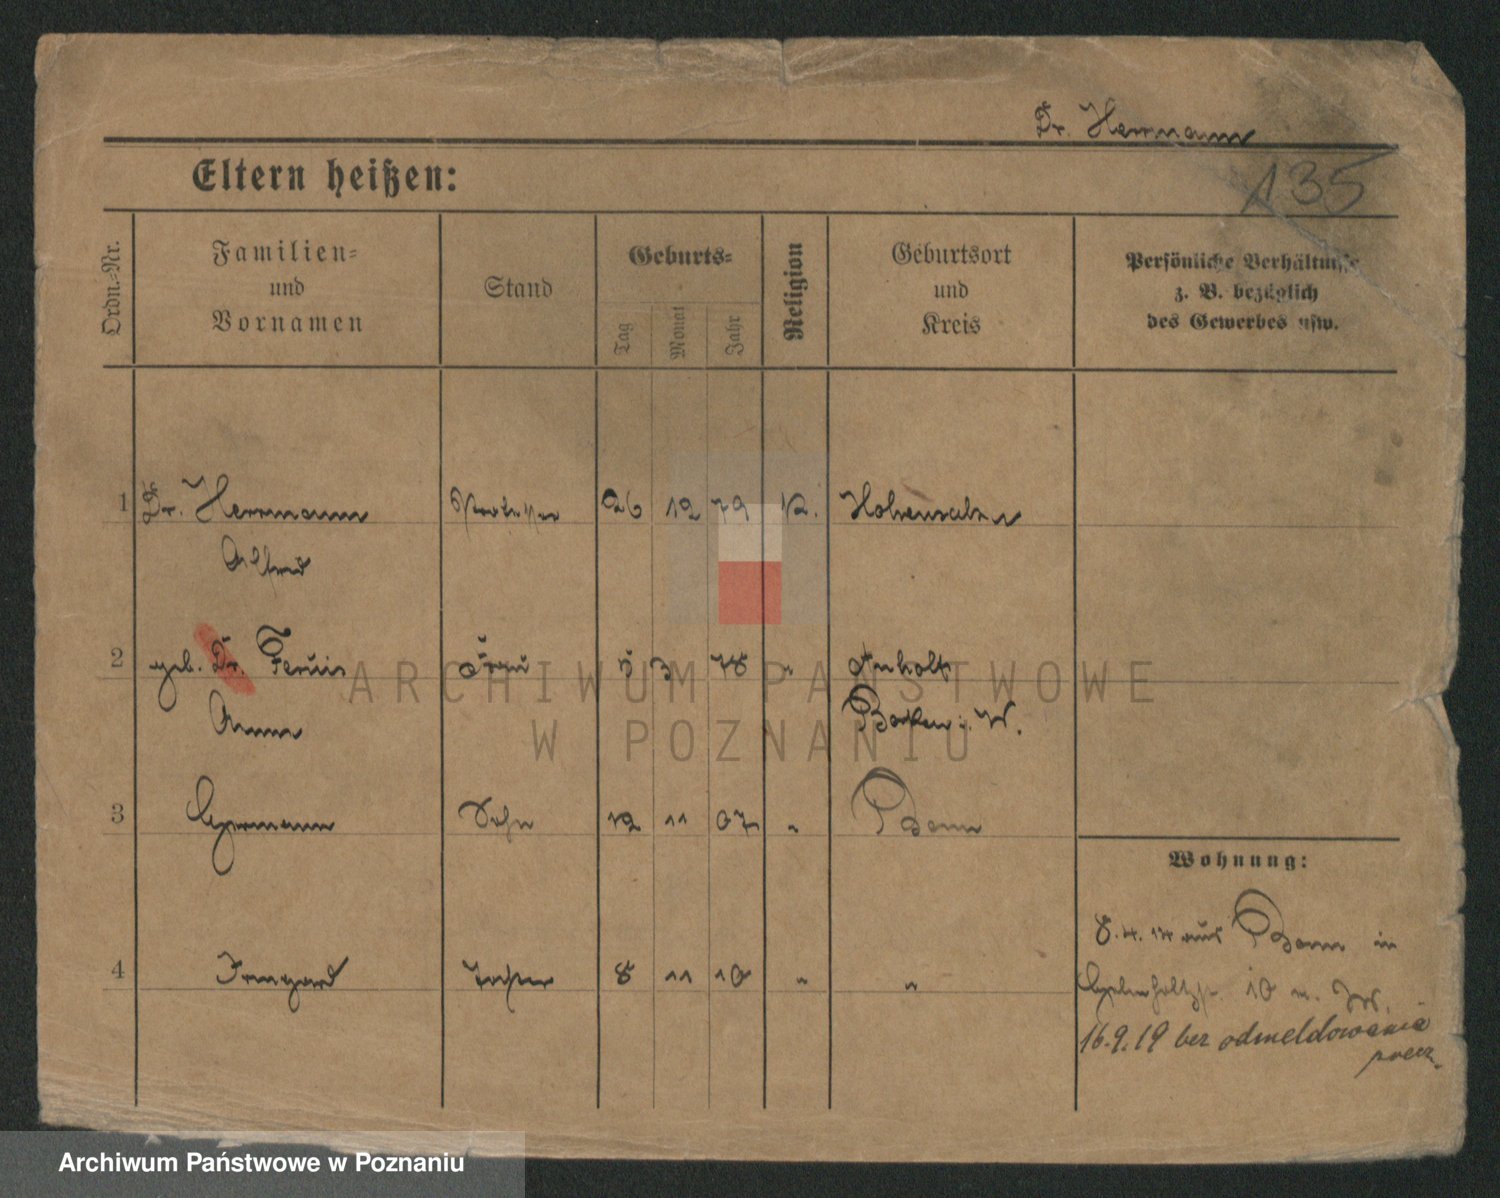 Dr. Herrmann
Eltern heißen:
135
Ordn.-Nr.
Familien-
und
Vornamen
Stand
Geburts-
Tag
Monat
Jahr
Religion
Geburtsort
und
Kreis
Persönliche Verhältnisse
z. B. bezüglich
des Gewerbes usw.
1 Dr. Herrmann Professor 26 12 79 K. Hohensalza
Alfred
2 geb. Dr. Frau 5 3 78 " Anholt
Anna Borken i. W.
3 Hermann Sohn 12 11 07 " Bonn
Wohnung:
8.4.14 aus Bonn in
4 Irmgard Tochter 8 11 10 " "
10 n. W.
16.9.19 bez odmeldowania
ARCHIWUM PAŃSTWOWE
W POZNANIU
Archiwum Państwowe w Poznaniu